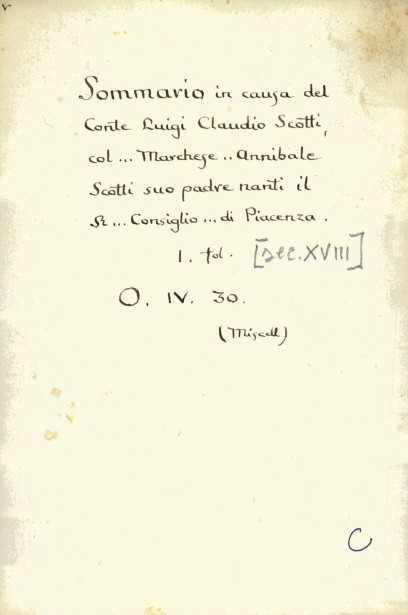 Sommario in causa del
Conte Luigi Claudio Scotti,
col... Marchese.. Annibale
Scotti suo padre nanti il
... Consiglio... di Piacenza.
1. fol. [sec. XVIII]
O. IV. 30.
(Miscell)
C